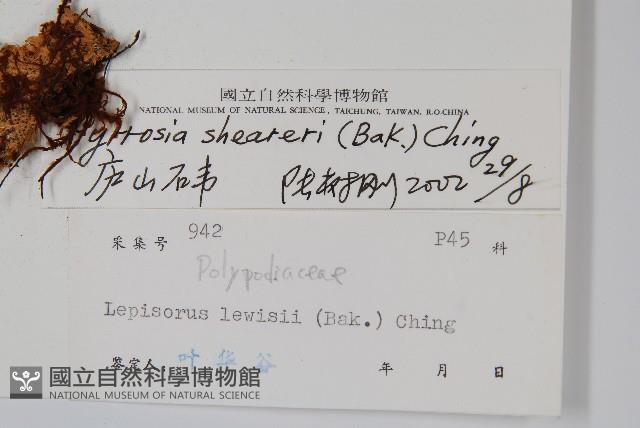 國立自然科學博物館
NATIONAL MUSEUM OF NATURAL SCIENCE, TAICHUNG, TAIWAN, R.O.CHINA
sheareri (Bak.) Ching
庐山石韦 2002 29/8
采集号 942 P45 科
Polypodiaceae
Lepisorus lewisii (Bak.) Ching
鉴定人 叶华谷 年 月 日
國立自然科學博物館
NATIONAL MUSEUM OF NATURAL SCIENCE